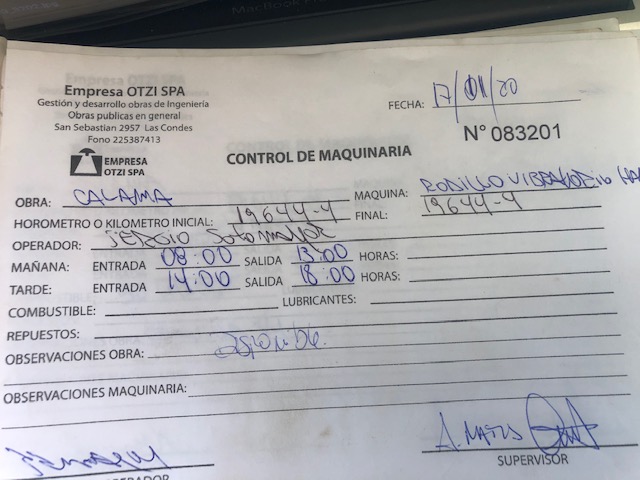 Empresa OTZI SPA
Gestión y desarrollo obras de Ingeniería
Obras publicas en general
San Sebastián 2957 Las Condes
Fono 225387413
FECHA: 17/01/20
EMPRESA
OTZI SPA
CONTROL DE MAQUINARIA
N° 083201
OBRA: CALAMA MAQUINA: RODILLO VIBRATORIO
HOROMETRO O KILOMETRO INICIAL: 19644-4 FINAL: 19644-4
OPERADOR: SERGIO
MAÑANA: ENTRADA 08:00 SALIDA 13:00 HORAS:
TARDE: ENTRADA 14:00 SALIDA 18:00 HORAS:
COMBUSTIBLE: LUBRICANTES:
REPUESTOS:
OBSERVACIONES OBRA:
OBSERVACIONES MAQUINARIA:
SUPERVISOR